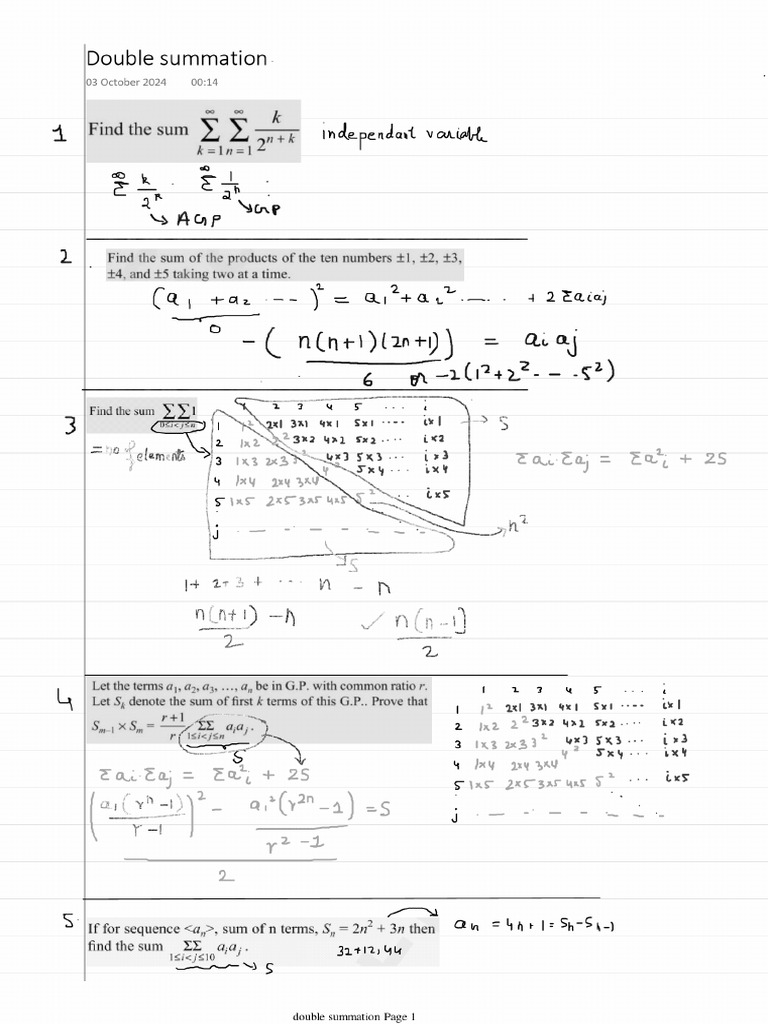 Double summation
03 October 2024 00:14
1 Find the sum ∑_{k=1}^{∞} ∑_{n=1}^{∞} k/2^{n+k} independant variable
∑^{∞} k/2^k . ∑^{∞} 1/2^n
↳ AGP ↳ GP
2 . Find the sum of the products of the ten numbers ±1, ±2, ±3,
±4, and ±5 taking two at a time.
(a₁ + a₂ ---)² = a₁² + a₂² ---- + 2 Σaiaj
0
-( n(n+1)(2n+1)/6 ) = ai aj
or -2(1²+2²- - - .5²)
3 Find the sum ∑∑1
0≤i<j≤n
= no of elements
1 2 3 4 5 ... i
1 1² 2x1 3x1 4x1 5x1 ···· ix1 → S
2 1x2 2² 3x2 4x2 5x2 ··· ix2
3 1x3 2x3 3² 4x3 5x3 ··· ix3
4 1x4 2x4 3x4 4² 5x4 ··· ix4
5 1x5 2x5 3x5 4x5 5² ··· ix5
j - - - - - - -
n²
S
Σai Σaj = Σai² + 2S
1+ 2+3+ ··· n - n
n(n+1)/2 - n ✓ n(n-1)/2
4 Let the terms a₁, a₂, a₃, ..., aₙ be in G.P. with common ratio r.
Let Sₖ denote the sum of first k terms of this G.P.. Prove that
Sₘ₋₁ × Sₘ = (r+1)/r ∑∑ aᵢaⱼ.
1≤i<j≤n
S
Σai·Σaj = Σai² + 2S
((a₁(rⁿ-1)/(r-1))² - a₁²(r²ⁿ-1)/(r²-1)) = S
2
1 2 3 4 5 ··· i
1 1² 2x1 3x1 4x1 5x1 ···· ix1
2 1x2 2² 3x2 4x2 5x2 ··· ix2
3 1x3 2x3 3² 4x3 5x3 ··· ix3
4 1x4 2x4 3x4 4² 5x4 ··· ix4
5 1x5 2x5 3x5 4x5 5² ··· ix5
j - - - - - - -
5. If for sequence <aₙ>, sum of n terms, Sₙ = 2n² + 3n then an = 4n+1 = Sn-Sn-1
find the sum ∑∑ aᵢaⱼ. 32+12, 44
1≤i<j≤10
→ S
double summation Page 1